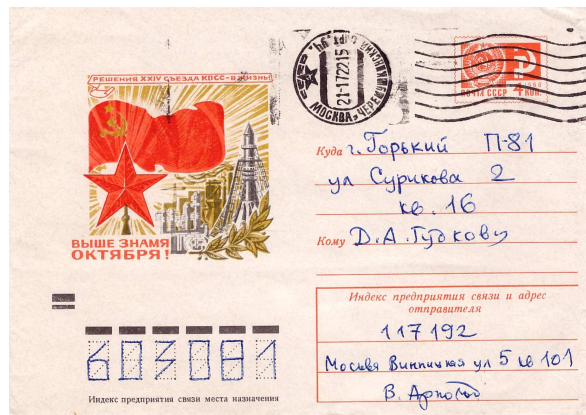 РЕШЕНИЯ XXIV СЪЕЗДА КПСС-В ЖИЗНЬ!
ВЫШЕ ЗНАМЯ
ОКТЯБРЯ!
21-172215
МОСКВА
ПОЧТА СССР 4 КОП.
Куда г. Горький П-81
ул Сурикова 2
кв. 16
Кому Д.А.Гудкову
Индекс предприятия связи и адрес
отправителя
117192
Москва Винницкая ул 5 кв 101
В.
603081
Индекс предприятия связи места назначения